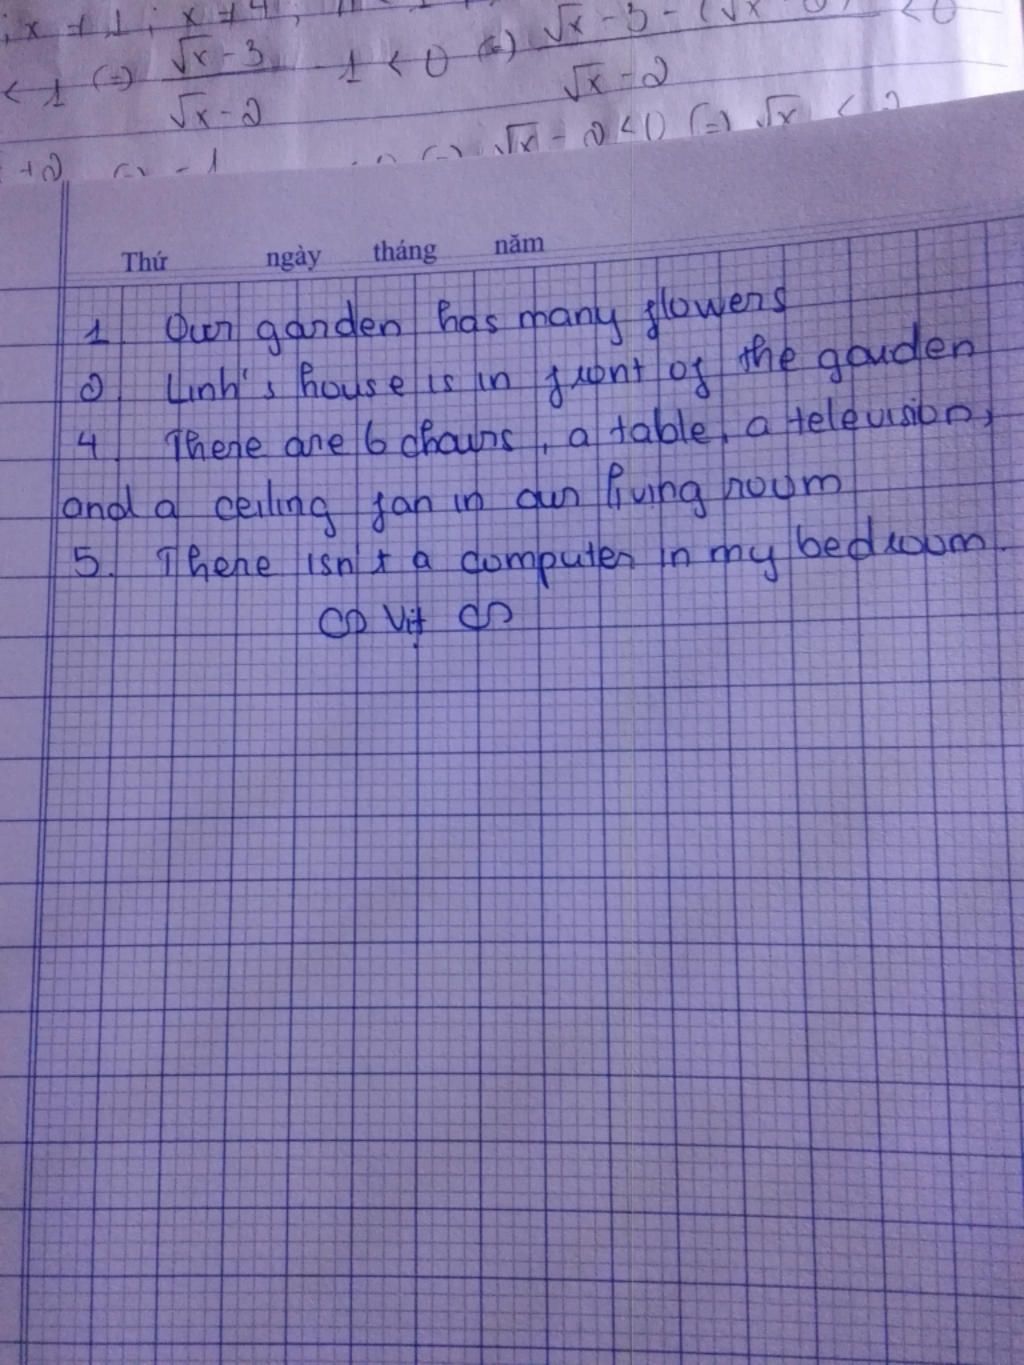 ; x ≠ 1 ; x ≠ 4 ;
< 1 (=) √x - 3 / √x - 2 - 1 < 0 (=) √x - 3 - (√x / √x - 2 < 0
+2 (=) - 1 (=) √x - 2 < 0 (=) √x < 2
Thứ ngày tháng năm
1 Our garden has many flowers
2 Linh's house is in front of the garden
4 There are 6 chairs, a table, a television,
and a ceiling fan in our living room
5. There isn't a computer in my bedroom.
Vịt